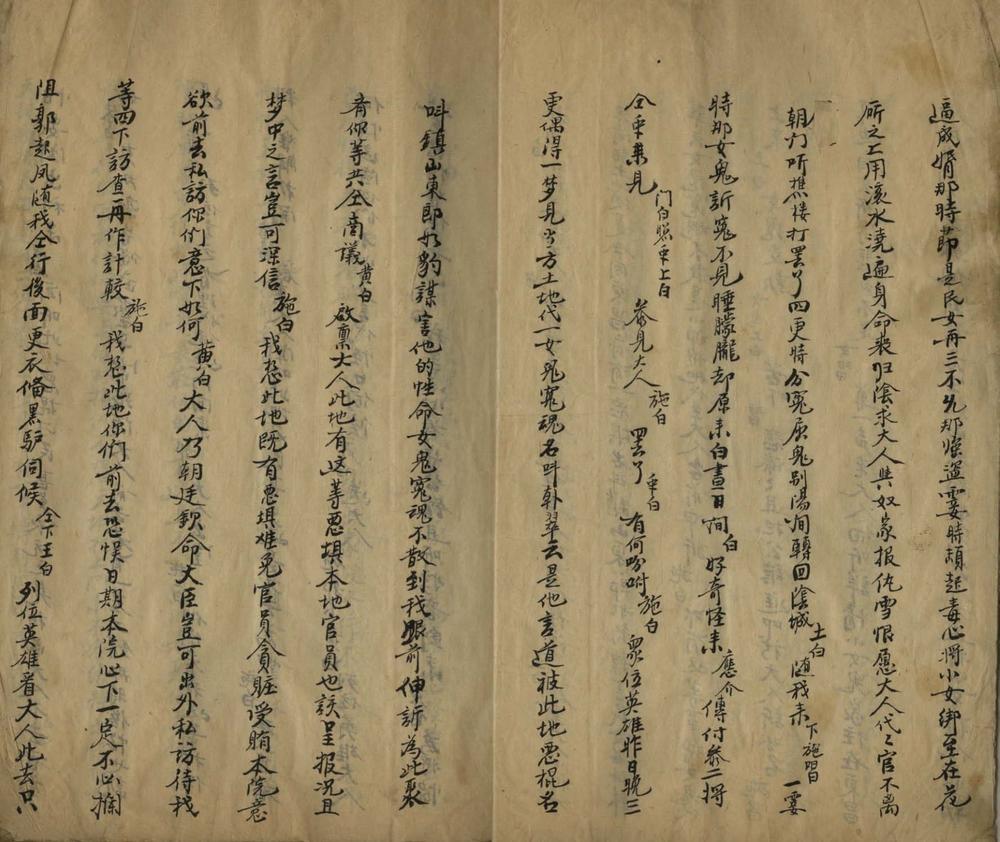 逼成婚那時節是民女再三不允那強盜霎時頓起毒心將小女绑至在花
廊之上用滚水澆遍身命喪归陰求大人與奴家报仇雪恨愿大人代代官不离
朝门听樵楼打罢了四更時分冤屈鬼别陽间轉回陰城土白随我来下施唱一霎
時那女鬼訴冤不見睡朦朧却原来白晝日间白好奇怪来應介傳付参二将
仝重来見门白照重上白参見大人施白罢了重白有何吩咐施白眾位英雄昨日晚三
更偶得一梦見当方土地代一女鬼冤魂名叫韓翠云是他言道被此地恶棍名
叫鎮山東郎如豹謀害他的性命女鬼冤魂不散到我眼前伸訴為此聚
斉你等共仝商議黄白啟禀大人此地有这等恶棍本地官員也該呈报况且
梦中之言豈可深信施白我想此地既有恶棍难免官員貪賍受賄本院意
欲前去私訪你们意下如何黄白大人乃朝廷欽命大臣豈可出外私訪待我
等四下訪查再作計較施白我想此地你们前去恐悮日期本院心下一定不必攔
阻郭起凤随我仝行後面更衣俻黑驴伺候仝下王白列位英雄看大人此去只